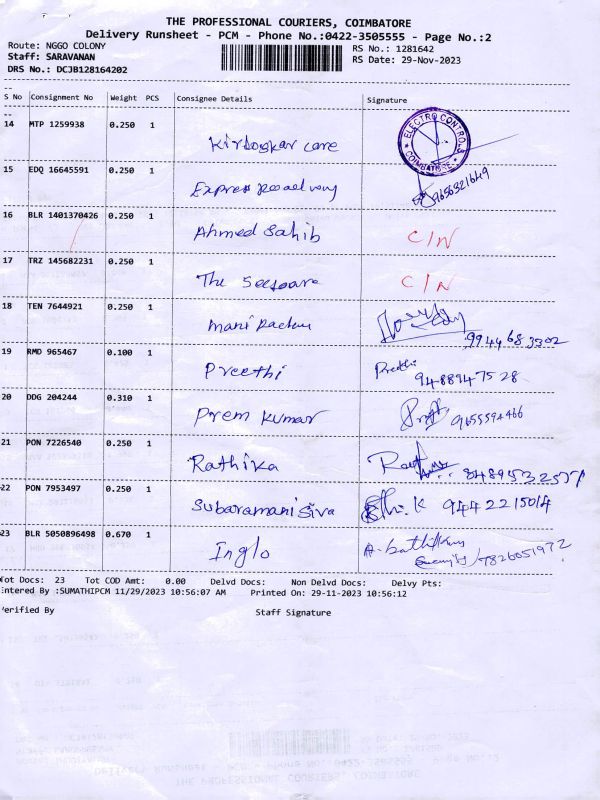 THE PROFESSIONAL COURIERS, COIMBATORE
Delivery Runsheet - PCM - Phone No.:0422-3505555 - Page No.:2
Route: NGGO COLONY RS No.: 1281642
Staff: SARAVANAN RS Date: 29-Nov-2023
DRS No.: DCJB128164202
S No Consignment No Weight PCS Consignee Details Signature
14 MTP 1259938 0.250 1
Kirloskar care
ELECTRO CONTROLS
COIMBATORE
15 EDQ 16645591 0.250 1
Express 9656321649
16 BLR 1401370426 0.250 1
Ahmed Sahib C/N
17 TRZ 145682231 0.250 1
The C/N
18 TEN 7644921 0.250 1
Mani
19 RMD 965467 0.100 1
Preethi Preethi
9488947528
20 DDG 204244 0.310 1
Prem Kumar
21 PON 7226540 0.250 1
Rathika
22 PON 7953497 0.250 1
Subaramani Siva 9442215014
23 BLR 5050896498 0.670 1
Inglo
7826051972
Tot Docs: 23 Tot COD Amt: 0.00 Delvd Docs: Non Delvd Docs: Delvy Pts:
Entered By :SUMATHIPCM 11/29/2023 10:56:07 AM Printed On: 29-11-2023 10:56:12
Verified By Staff Signature